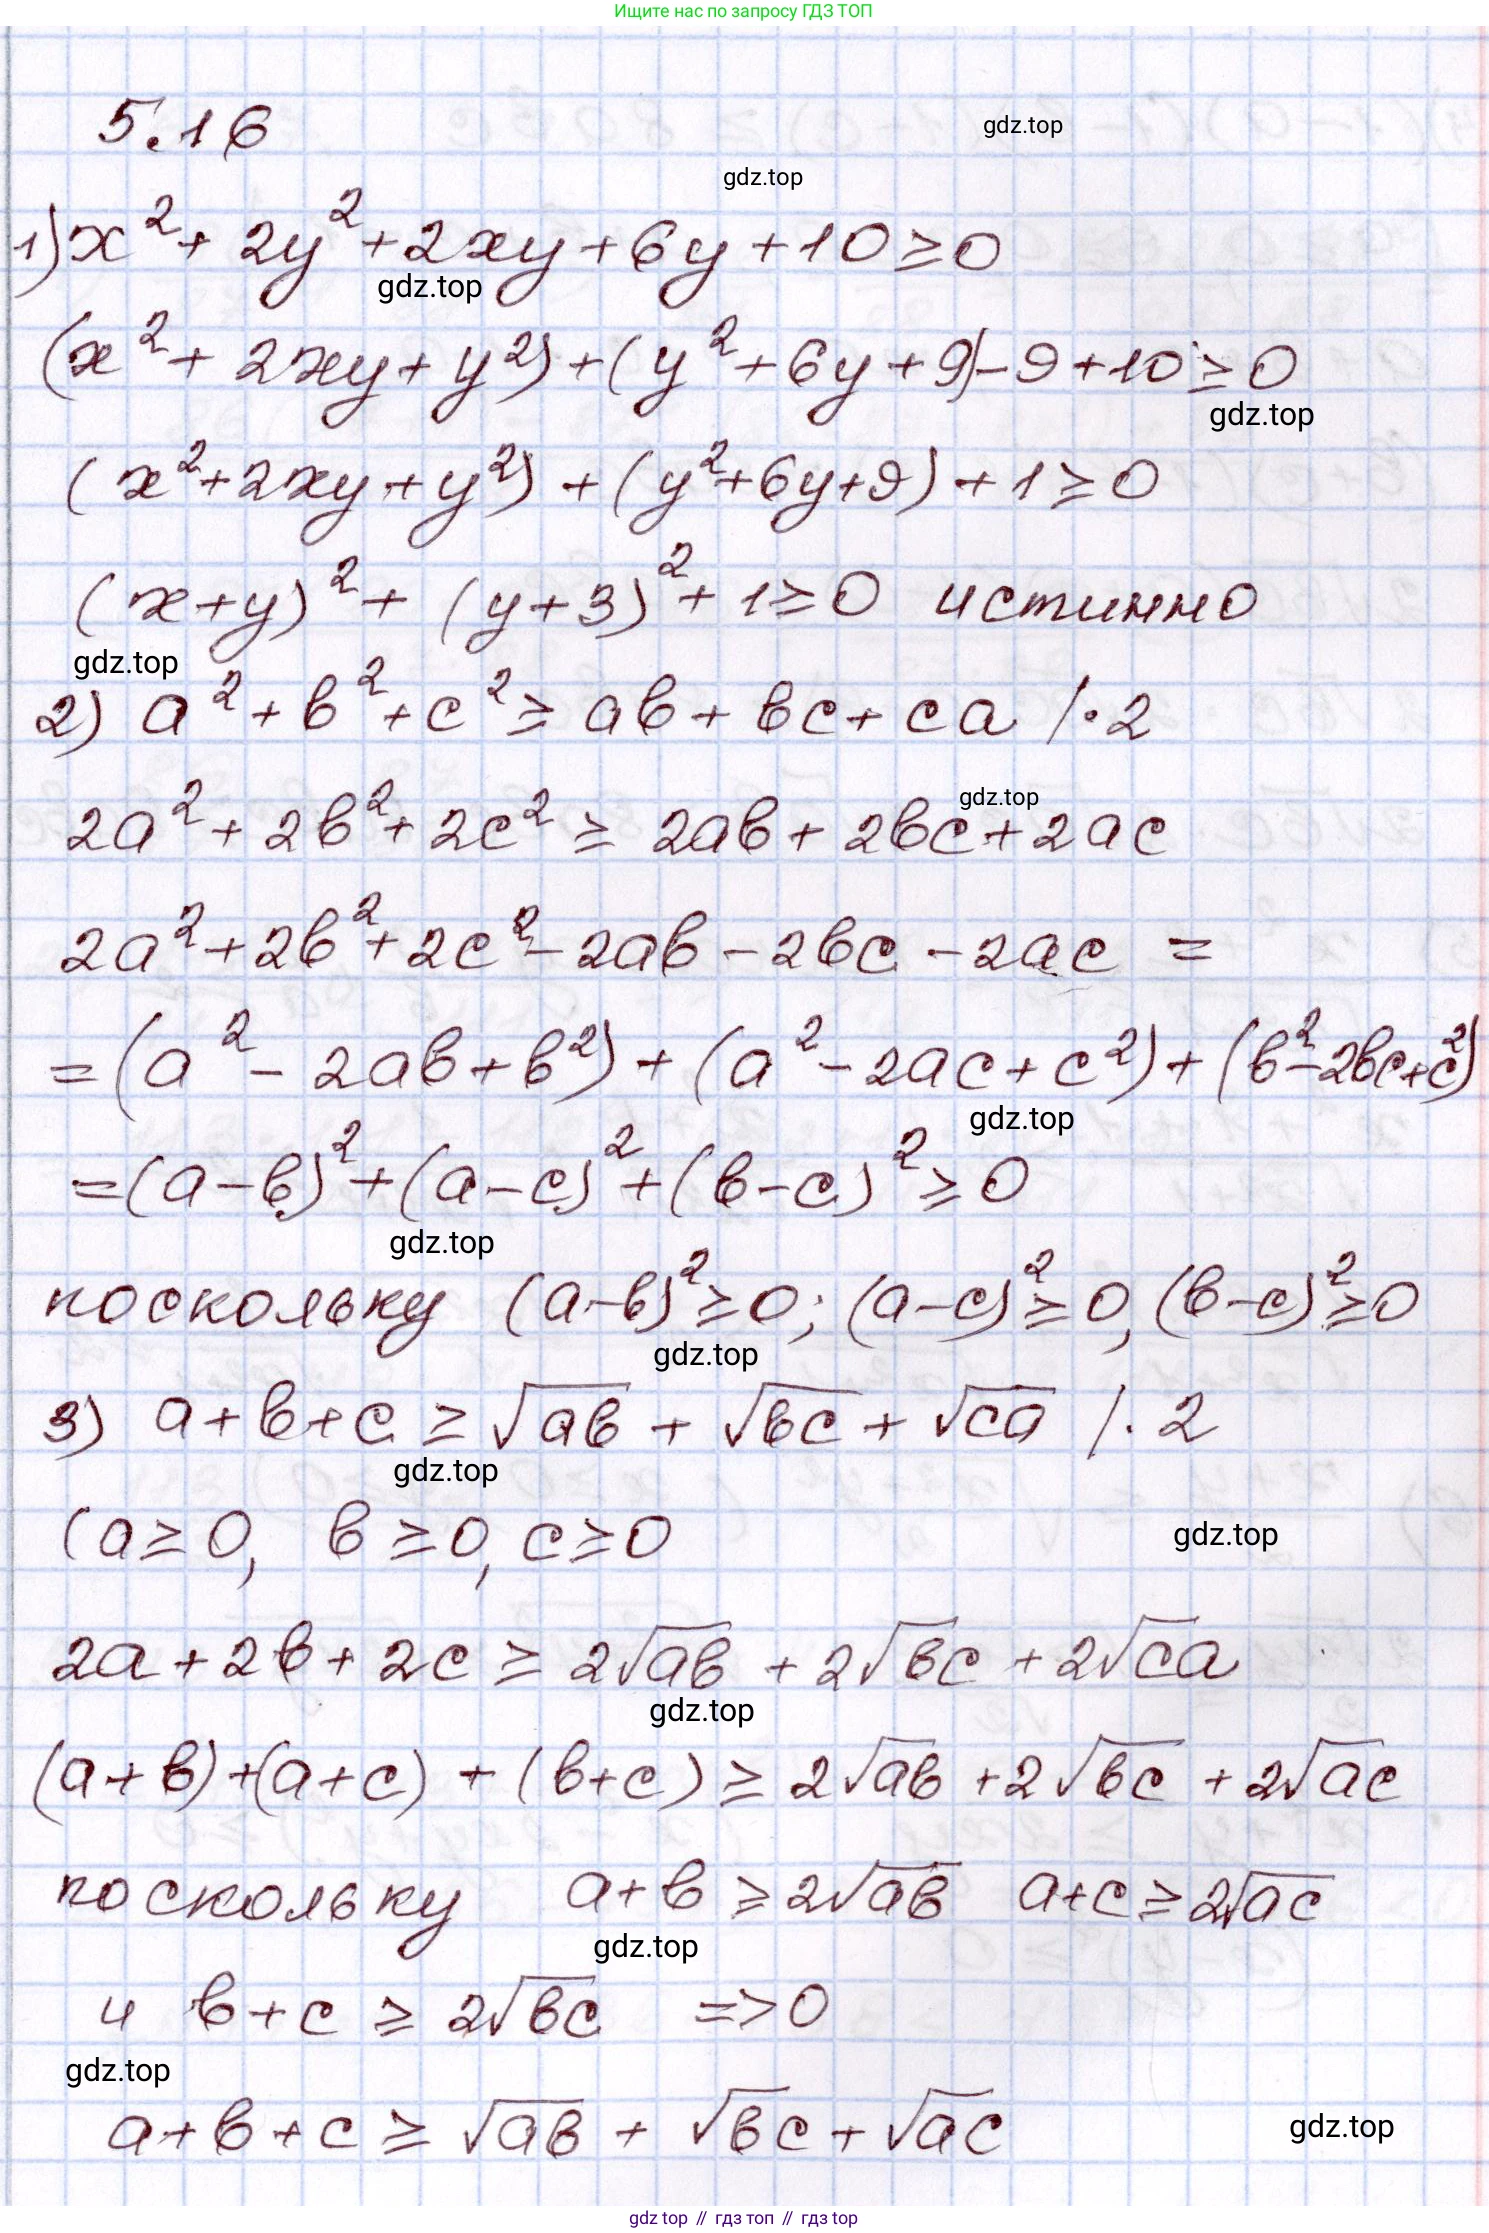 Ищите нас по запросу ГДЗ ТОП
5.16
gdz.top
gdz.top
1) x² + 2y² + 2xy + 6y + 10 ≥ 0
gdz.top
(x² + 2xy + y²) + (y² + 6y + 9) - 9 + 10 ≥ 0
gdz.top
(x² + 2xy + y²) + (y² + 6y + 9) + 1 ≥ 0
(x + y)² + (y + 3)² + 1 ≥ 0 истинно
gdz.top
2) a² + b² + c² ≥ ab + bc + ca /·2
gdz.top
2a² + 2b² + 2c² ≥ 2ab + 2bc + 2ac
2a² + 2b² + 2c² - 2ab - 2bc - 2ac =
= (a² - 2ab + b²) + (a² - 2ac + c²) + (b² - 2bc + c²)
gdz.top
= (a - b)² + (a - c)² + (b - c)² ≥ 0
gdz.top
поскольку (a - b)² ≥ 0; (a - c)² ≥ 0, (b - c)² ≥ 0
gdz.top
3) a + b + c ≥ √ab + √bc + √ca /·2
gdz.top
(a ≥ 0, b ≥ 0, c ≥ 0
gdz.top
2a + 2b + 2c ≥ 2√ab + 2√bc + 2√ca
gdz.top
(a + b) + (a + c) + (b + c) ≥ 2√ab + 2√bc + 2√ac
поскольку a + b ≥ 2√ab a + c ≥ 2√ac
gdz.top
и b + c ≥ 2√bc => 0
gdz.top
a + b + c ≥ √ab + √bc + √ac
gdz.top
gdz top // гдз топ // гдз top